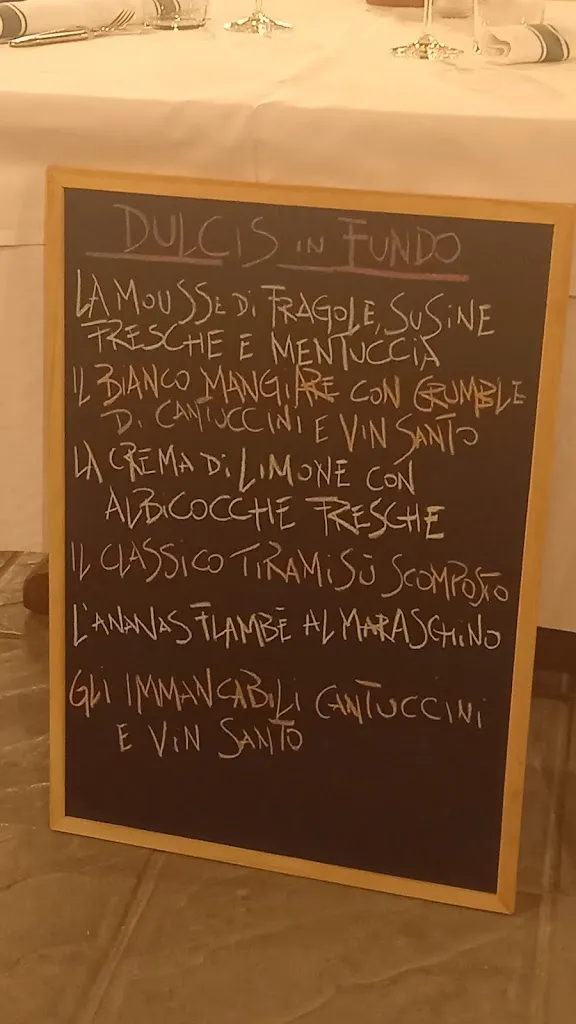 DULCIS IN FUNDO
LA MOUSSE DI FRAGOLE, SUSINE
FRESCHE E MENTUCCIA
IL BIANCO MANGIARE CON CRUMBLE
DI CANTUCCINI E VIN SANTO
LA CREMA DI LIMONE CON
ALBICOCCHE FRESCHE
IL CLASSICO TIRAMISÙ SCOMPOSTO
L'ANANAS FLAMBÈ AL MARASCHINO
GLI IMMANCABILI CANTUCCINI
E VIN SANTO